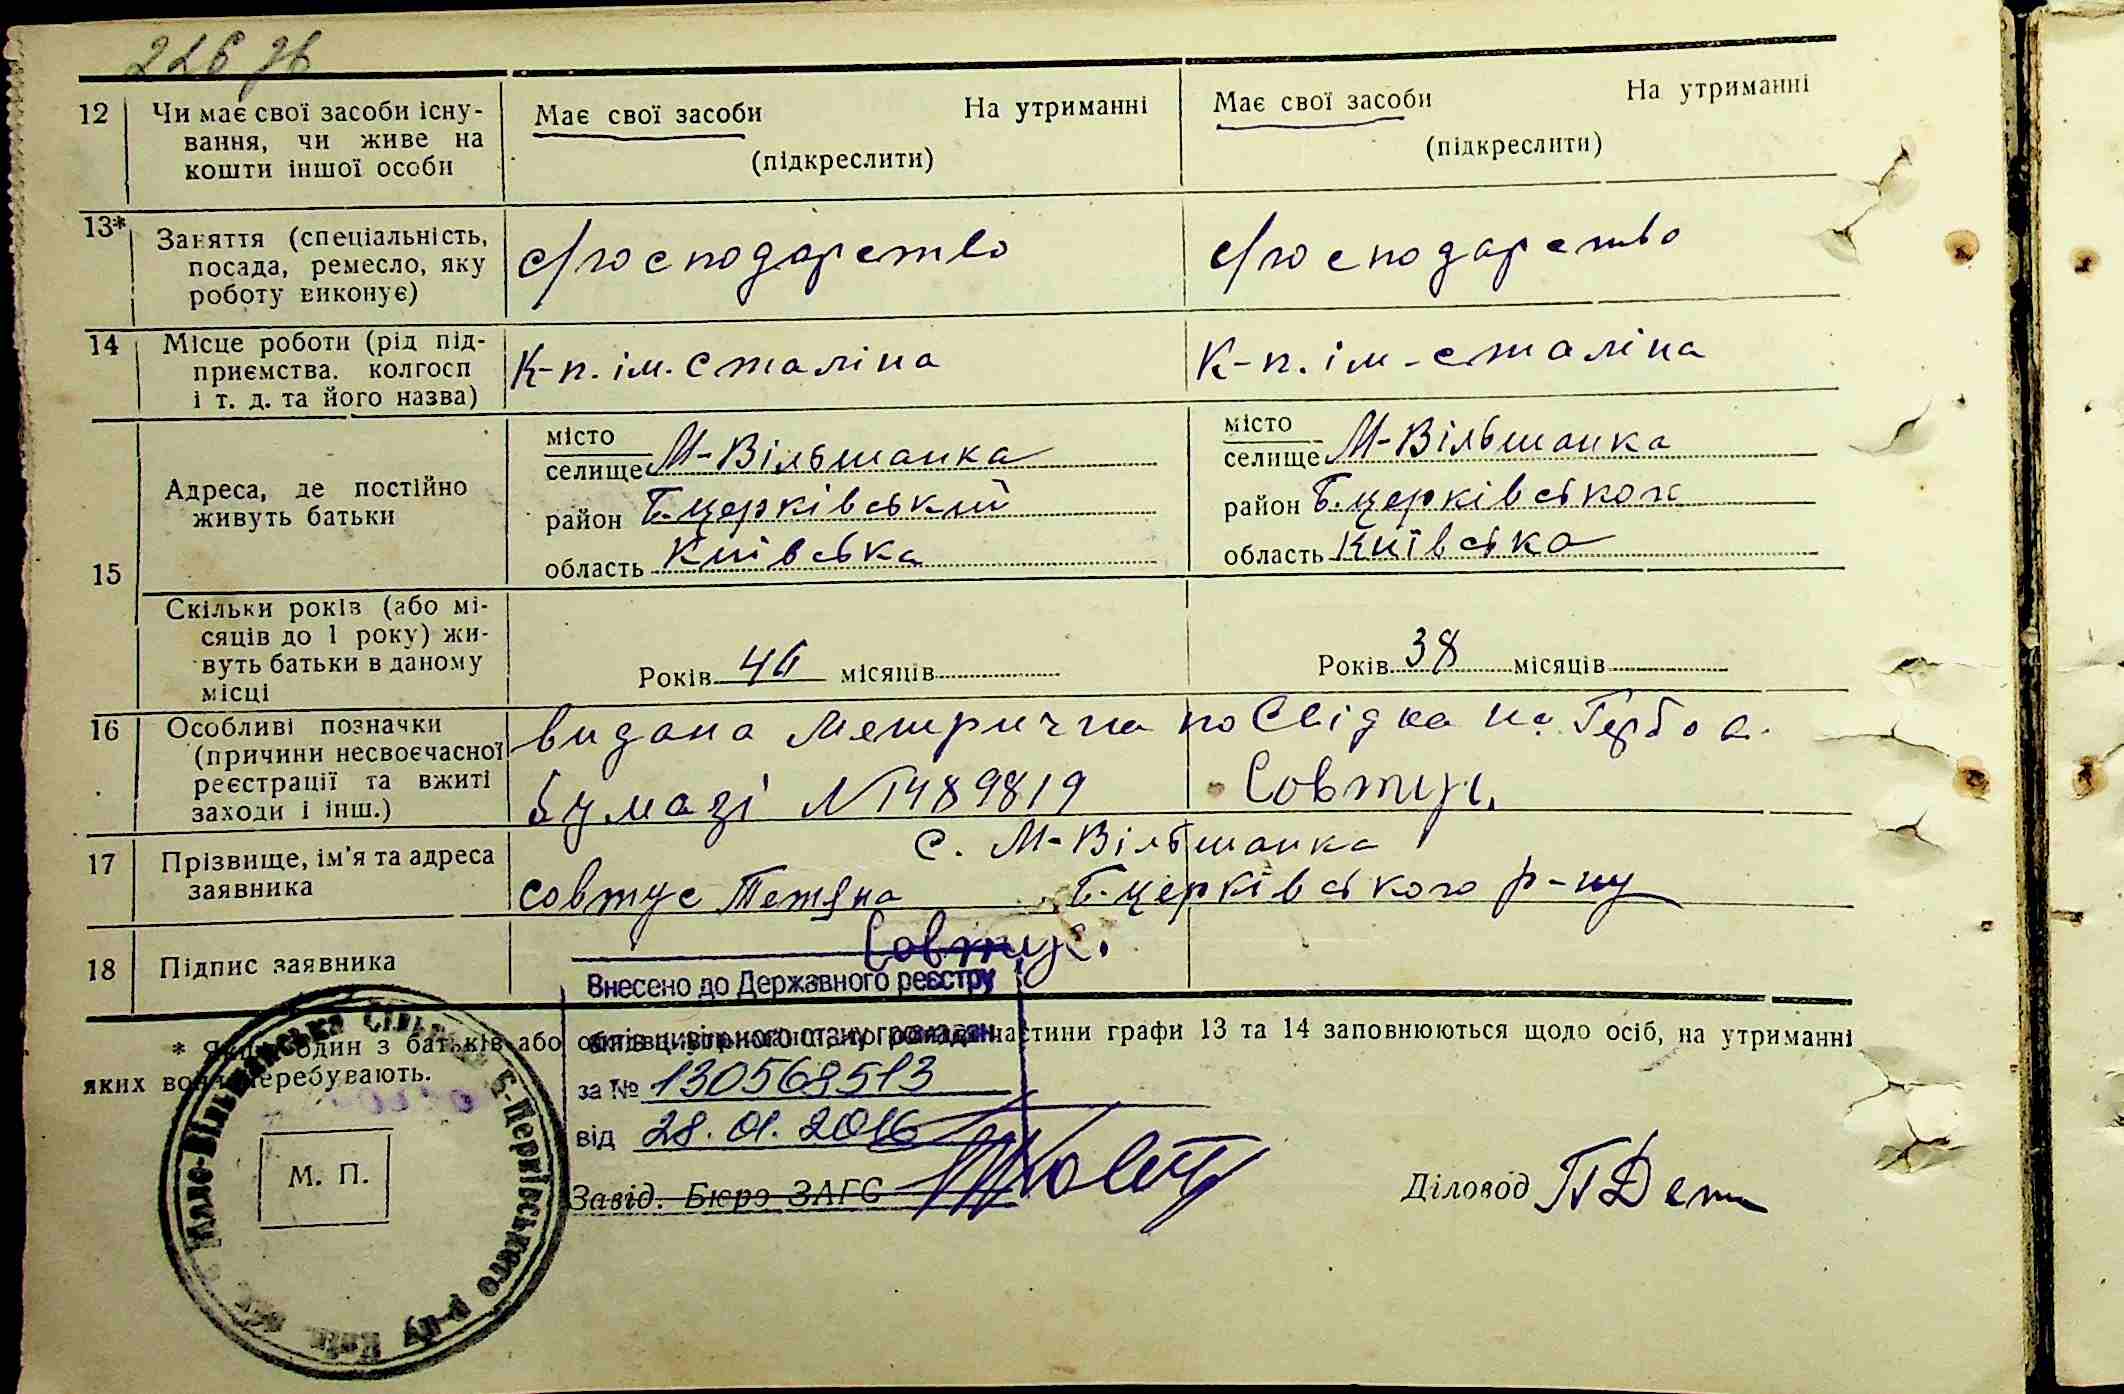 226 зв
12 Чи має свої засоби існу-
вання, чи живе на
кошти іншої особи
Має свої засоби На утриманні
(підкреслити)
Має свої засоби На утриманні
(підкреслити)
13* Заняття (спеціальність,
посада, ремесло, яку
роботу виконує)
с/господарство
с/господарство
14 Місце роботи (рід під-
приємства, колгосп
і т. д. та його назва)
К-п. ім. Сталіна
К-п. ім-Сталіна
15 Адреса, де постійно
живуть батьки
місто
селище М-Вільшанка
район Б.церківський
область Київська
місто
селище М-Вільшанка
район Б.церківського
область Київська
Скільки років (або мі-
сяців до 1 року) жи-
вуть батьки в даному
місці
Років 46 місяців
Років 38 місяців
16 Особливі позначки
(причини несвоєчасної
реєстрації та вжиті
заходи і інш.)
видана метрична посвідка на Гербов.
бумазі N 1489819 Совтус.
17 Прізвище, ім'я та адреса
заявника
с. М-Вільшанка
Совтус Тетяна Б-церківського р-ну
18 Підпис заявника
Совтус.
Внесено до Державного реєстру
актів цивільного стану громадян
за № 130568513
від 28.01.2016
* Якщо один з батьків або частини графи 13 та 14 заповнюються щодо осіб, на утриманні
яких вони перебувають.
М. П.
Мало-Вільшанська Сільська Б-Церківського р-ну Київ.
Завід. Бюро ЗАГС
Діловод